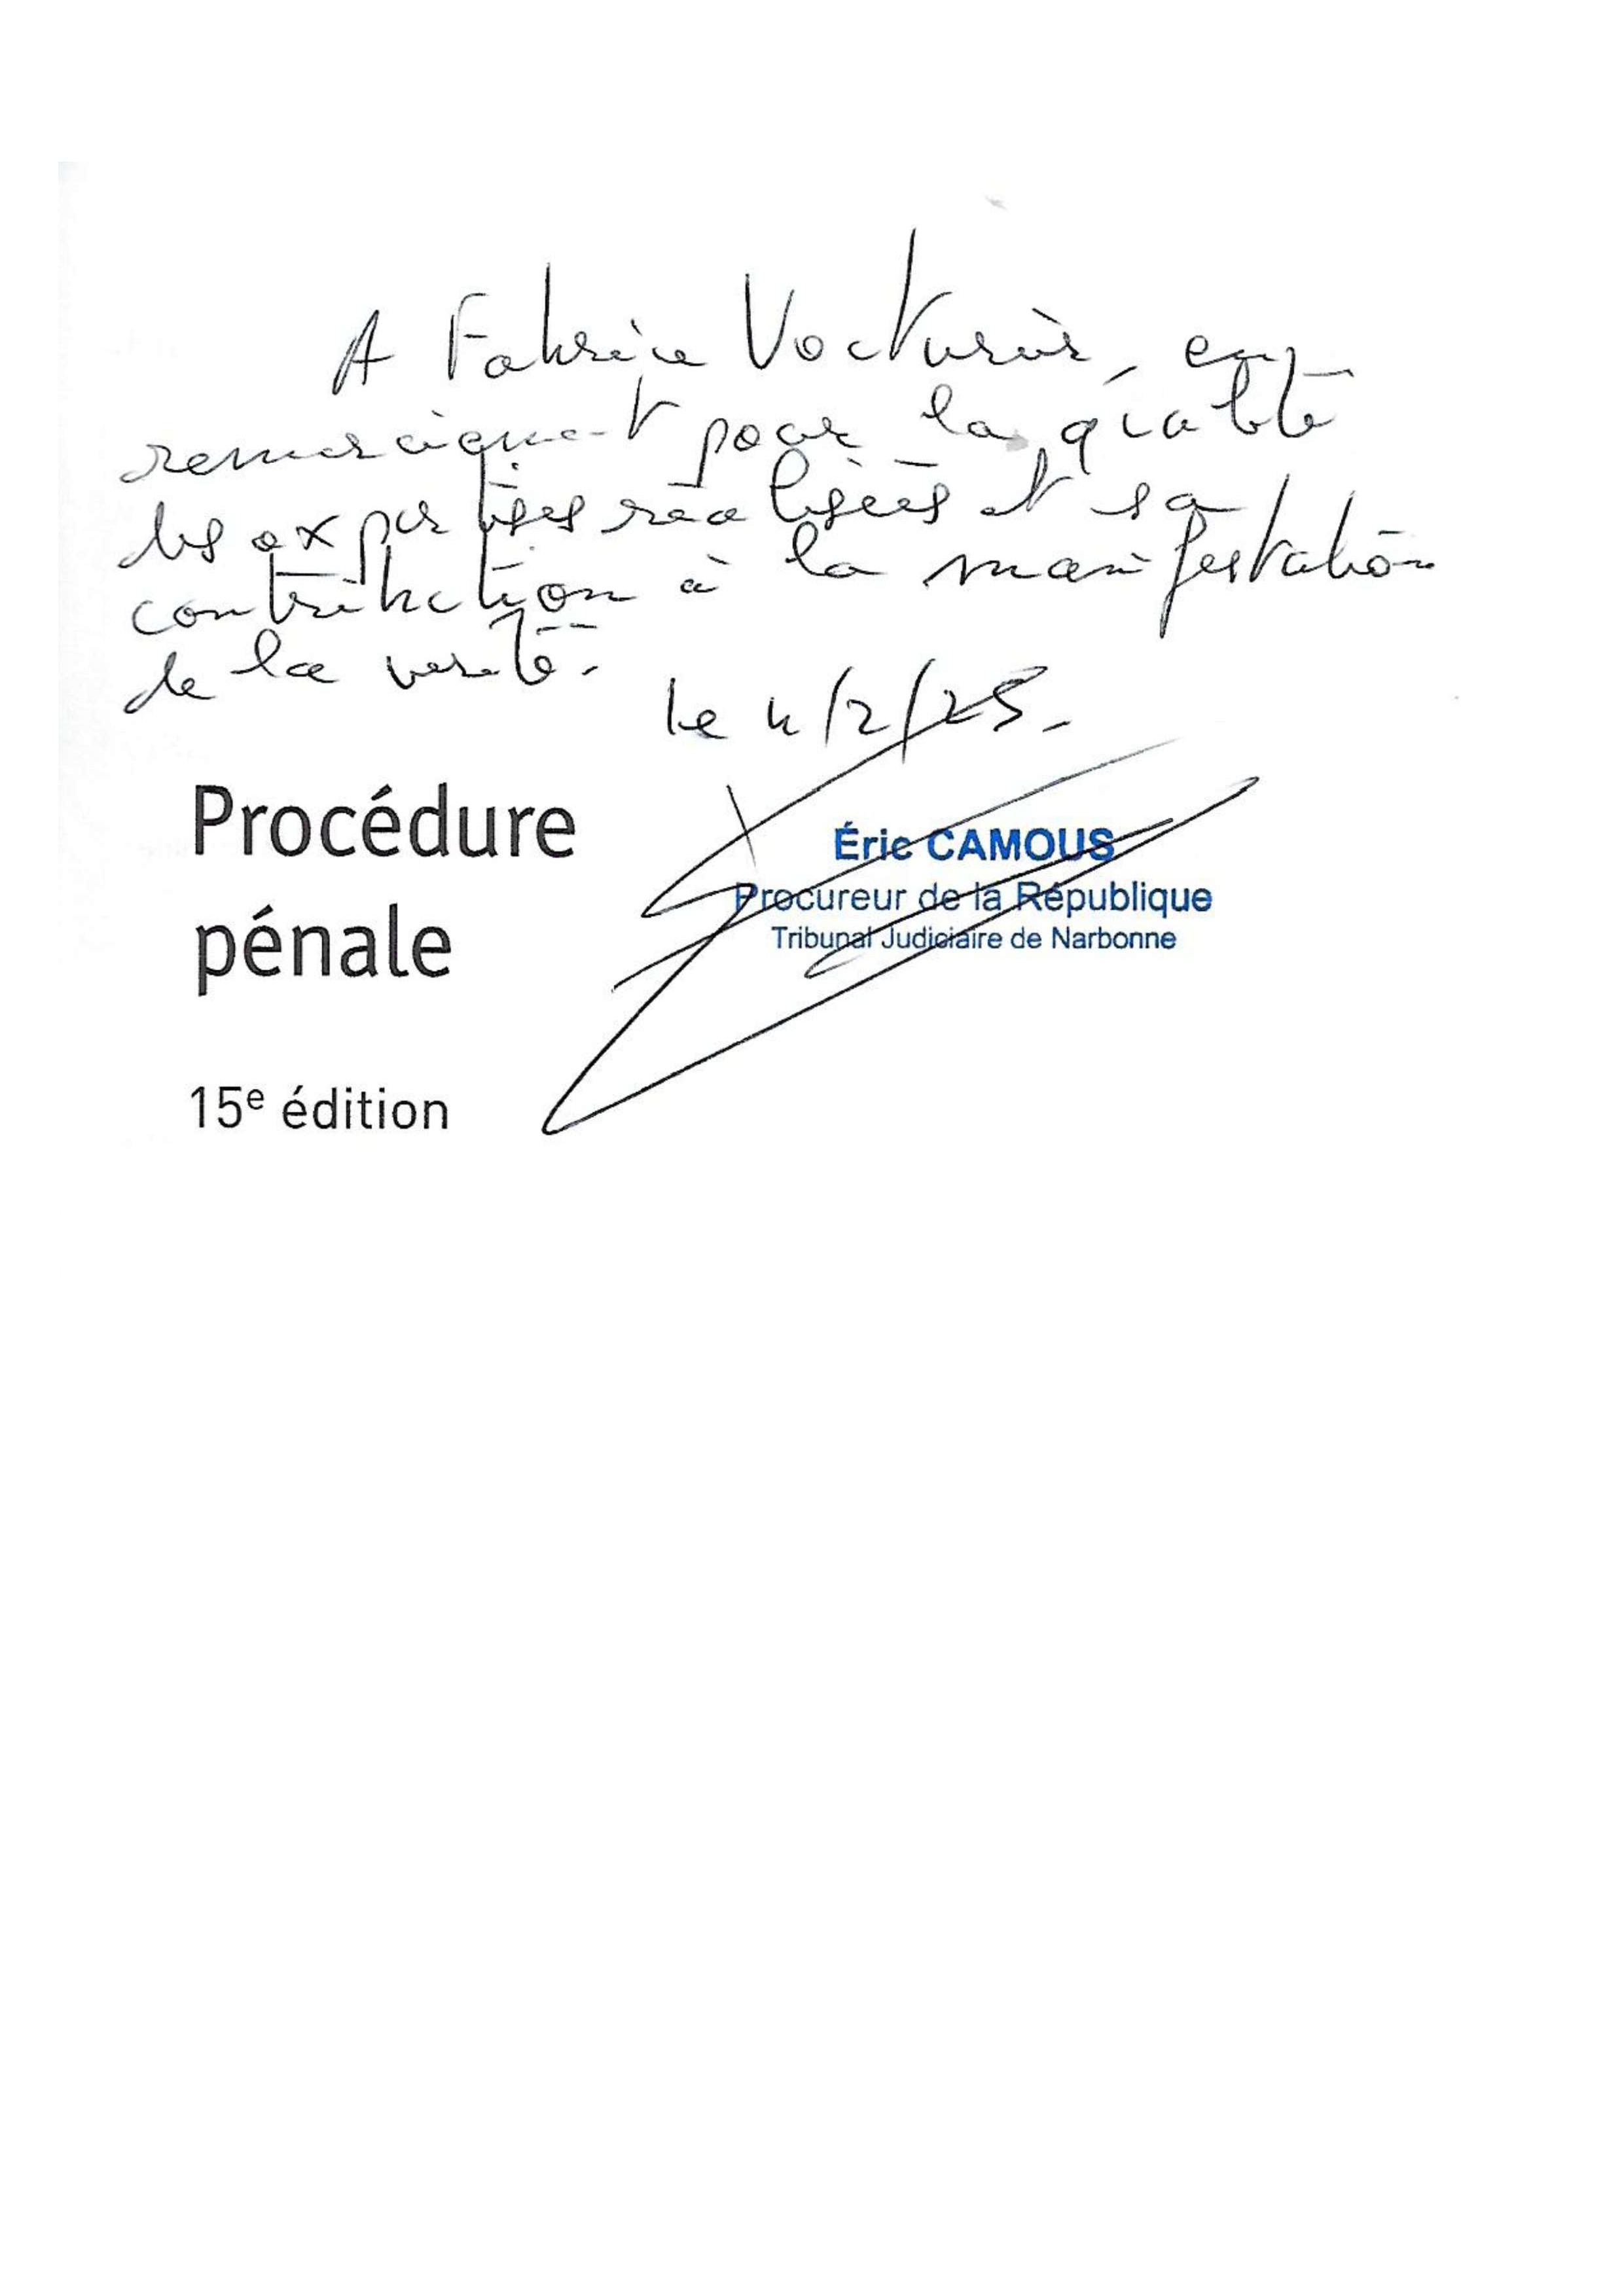 A Fabrice Vocturier, en
remerciement pour la qualité
des expertises réalisées et sa
contribution à la manifestation
de la verité.
le 4/2/25.
Procédure
pénale
15e édition
Éric CAMOUS
Procureur de la République
Tribunal Judiciaire de Narbonne